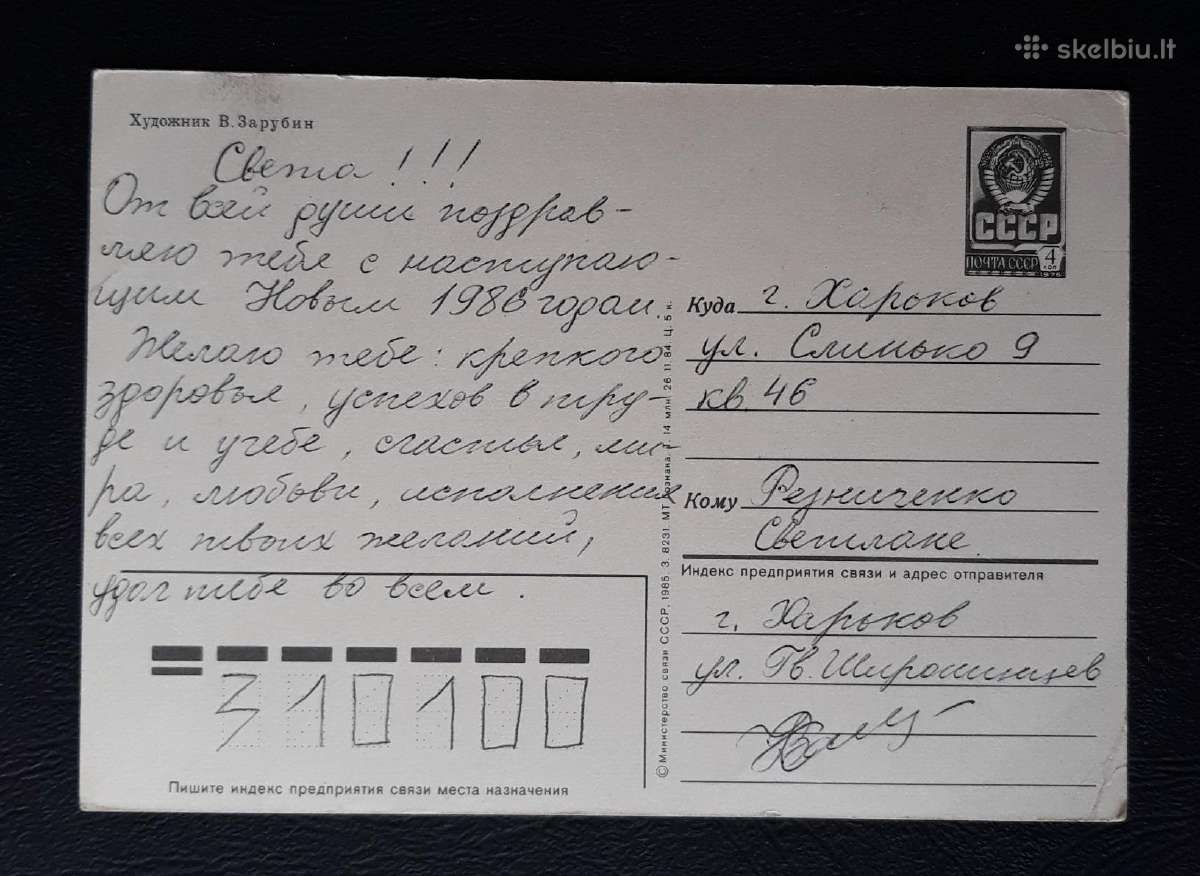 skelbiu.lt
Художник В. Зарубин
Света!!!
От всей души поздрав-
ляю тебе с наступаю-
щим Новым 1986 годом.
Желаю тебе: крепкого
здоровья, успехов в тру-
де и учебе, счастья, ми-
ра, любьви, исполнения
всех твоих желаний,
удач тебе во всем.
310100
Пишите индекс предприятия связи места назначения
СССР
ПОЧТА СССР
4
коп
1976
Куда г. Харьков
ул. Слинько 9
кв. 46
Кому Резниченко
Светлане.
Индекс предприятия связи и адрес отправителя
г. Харьков
ул. Гв. Широнинцев
© Министерство связи СССР, 1985. З. 8231. МТ Гознака. 14 млн. 26.11.84. Ц. 5 к.